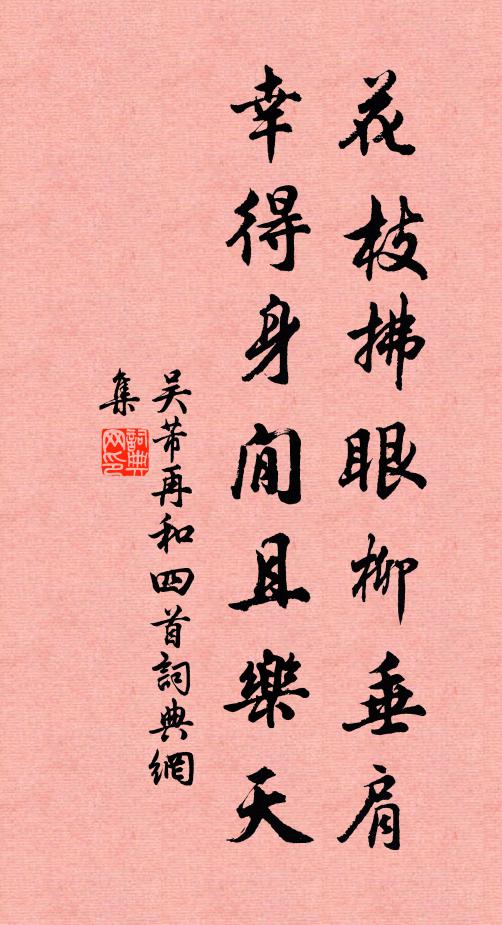 花枝拂眼柳垂肩
幸得身闲且樂天
吴芾再和四首詞典網
集
詞典
网印